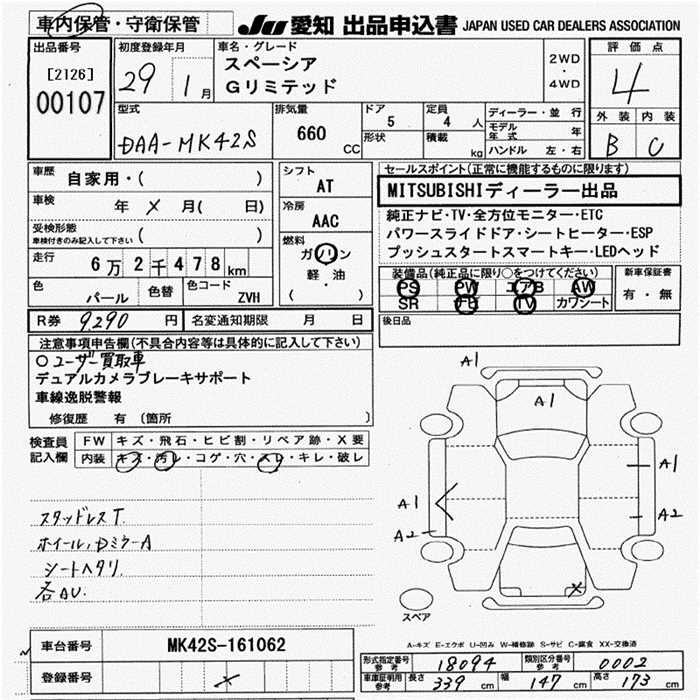 車内保管・守衛保管
JU 愛知 出品申込書 JAPAN USED CAR DEALERS ASSOCIATION
出品番号
[2126]
00107
初度登録年月
29 1月
車名・グレード
スペーシア
Gリミテッド
2WD
・
4WD
評価点
4
外装 内装
B C
型式
DAA-MK42S
排気量
660 CC
ドア 5
形状
定員 4 人
積載 kg
ディーラー・並行
モデル年式 年
ハンドル 左・右
車歴 自家用・( )
車検 年 X 月( 日)
受検形態
車検付きのみ記入して下さい ( )
走行 6万2千478km
色 パール
色替
色コード ZVH
シフト
AT
冷房
AAC
燃料
ガソリン
軽油
( )
セールスポイント(正常に機能するものに限ります)
MITSUBISHIディーラー出品
純正ナビ・TV・全方位モニター・ETC
パワースライドドア・シートヒーター・ESP
プッシュスタートスマートキー・LEDヘッド
装備品(純正品に限り○をつけてください)
PS PW エアB AW
SR ナビ TV カワシート
新車保証書
有・無
R券 9290 円
名変通知期限 月 日
後日品
注意事項申告欄(不具合内容等は具体的に記入して下さい)
○ユーザー買取車
デュアルカメラブレーキサポート
車線逸脱警報
修復歴 有 (箇所 )
検査員記入欄
FW キズ・飛石・ヒビ割・リペア跡・X要
内装 キズ・汚レ・コゲ・穴・スレ・キレ・破レ
スタッドレスT
ホイール,DミラーA
シートヘタリ
各AU.
A1
A1
A1
A1
A2
A2
X
スペア
A-キズ E-エクボ U-凹み W-補修跡 S-サビ C-腐食 XX-交換済
車台番号 MK42S-161062
登録番号 X
形式指定番号参考 18094
類別区分番号参考 0002
車庫証明用参考 長さ 339 cm 幅 147 cm 高さ 173 cm